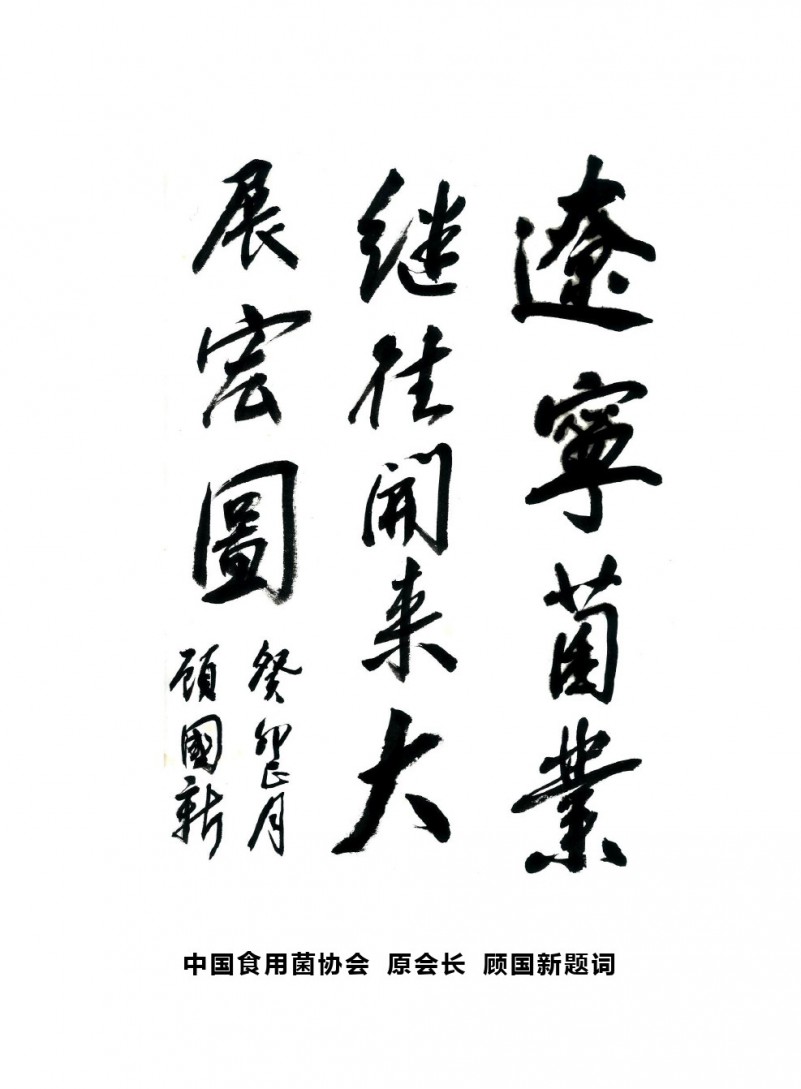 遼寧菌業
继往開来大
展宏圖
癸卯正月
顾國新
中国食用菌协会 原会长 顾国新题词